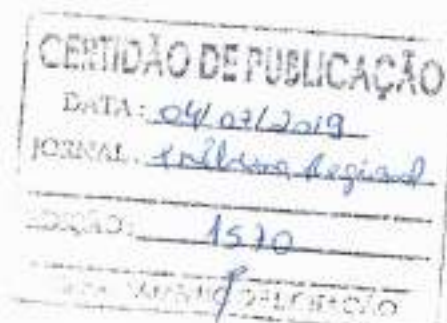 CERTIDÃO DE PUBLICAÇÃO
DATA: 04/07/2019
JORNAL: Regional
EDIÇÃO: 1570